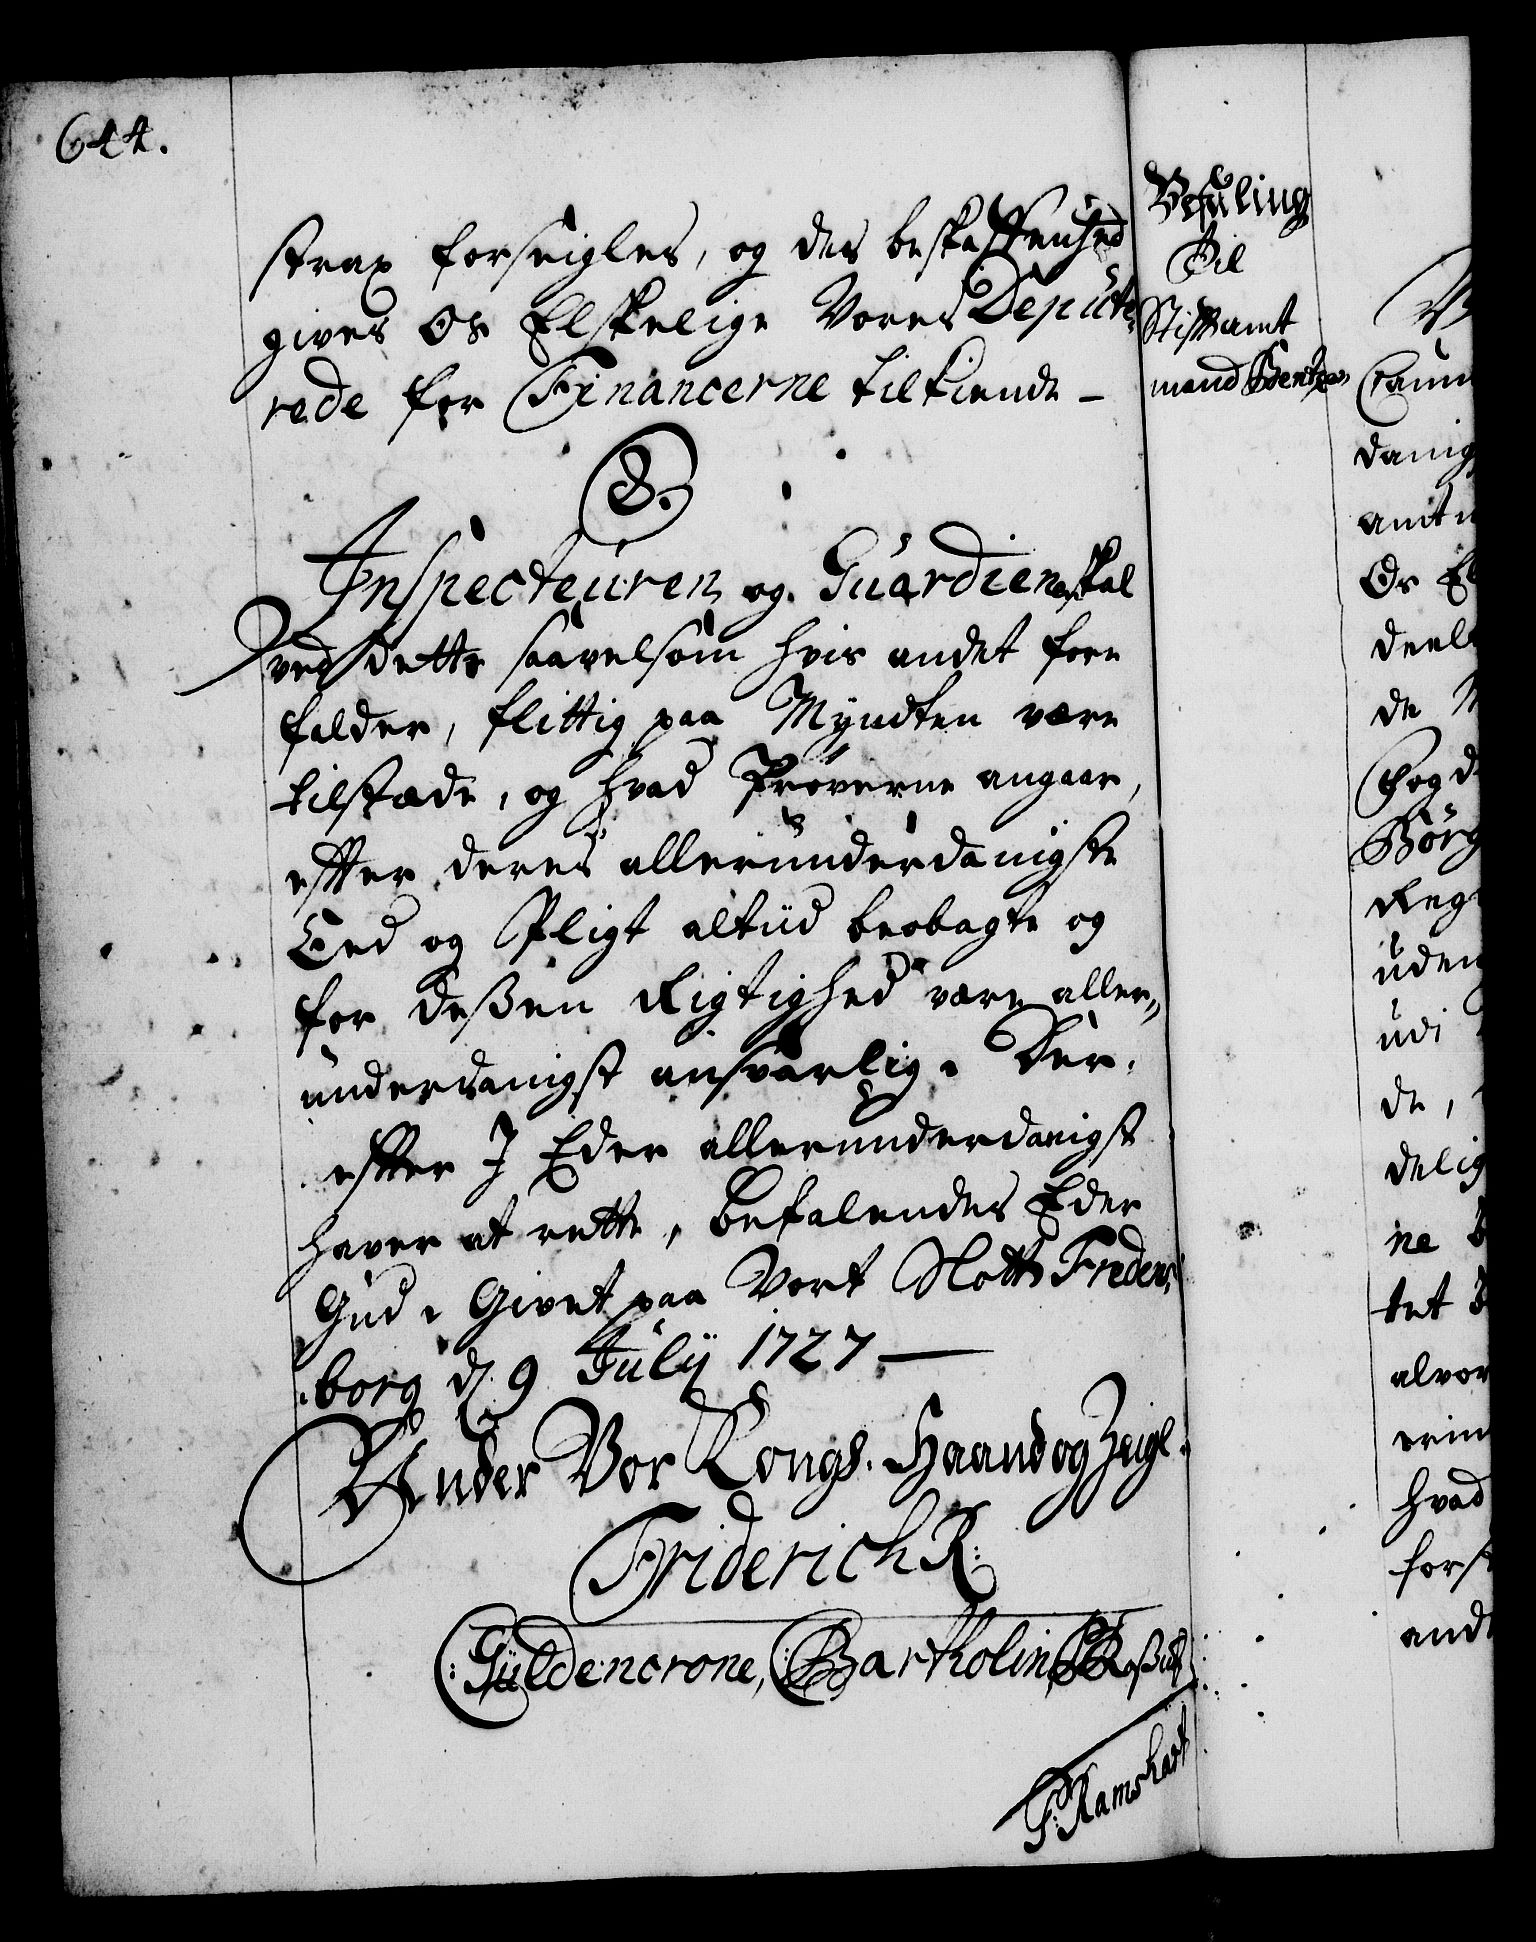 644.
strax forseigles, og des beskaffenhed
gives Os Elskelige Vores Depute-
rede for Financerne tilkiende -
8.
Inspecteuren og Guardienen skal
ved dette saavelsom hvis andet fore
falder, flittig paa Myndten være
tilstæde, og hvad Prøverne angaar,
effter deres allerunderdanigste
Eed og Pligt altiid beobagte og
for deßen Rigtighed være aller„
underdanigst ansvarlig. Der,
effter I Eder allerunderdanigst
haver at rette, Befalendes Eder
Gud. Givet paa Vort Slott Fredens
borg d. 9 July 1727 —
Under Vor Kongl. Haand og Zeigl.
Friderich R:
Güldencrone, Bartholin, Roßius
F: Ramshart
Befaling
Til
Stiftsamt
mand Bentzen
Caum
danig
amt
Os El
deel
de
Fogd
Börg
Reg
uden
udi
de,
delig
ne
tet
alvor
erin
hvad
forst
and